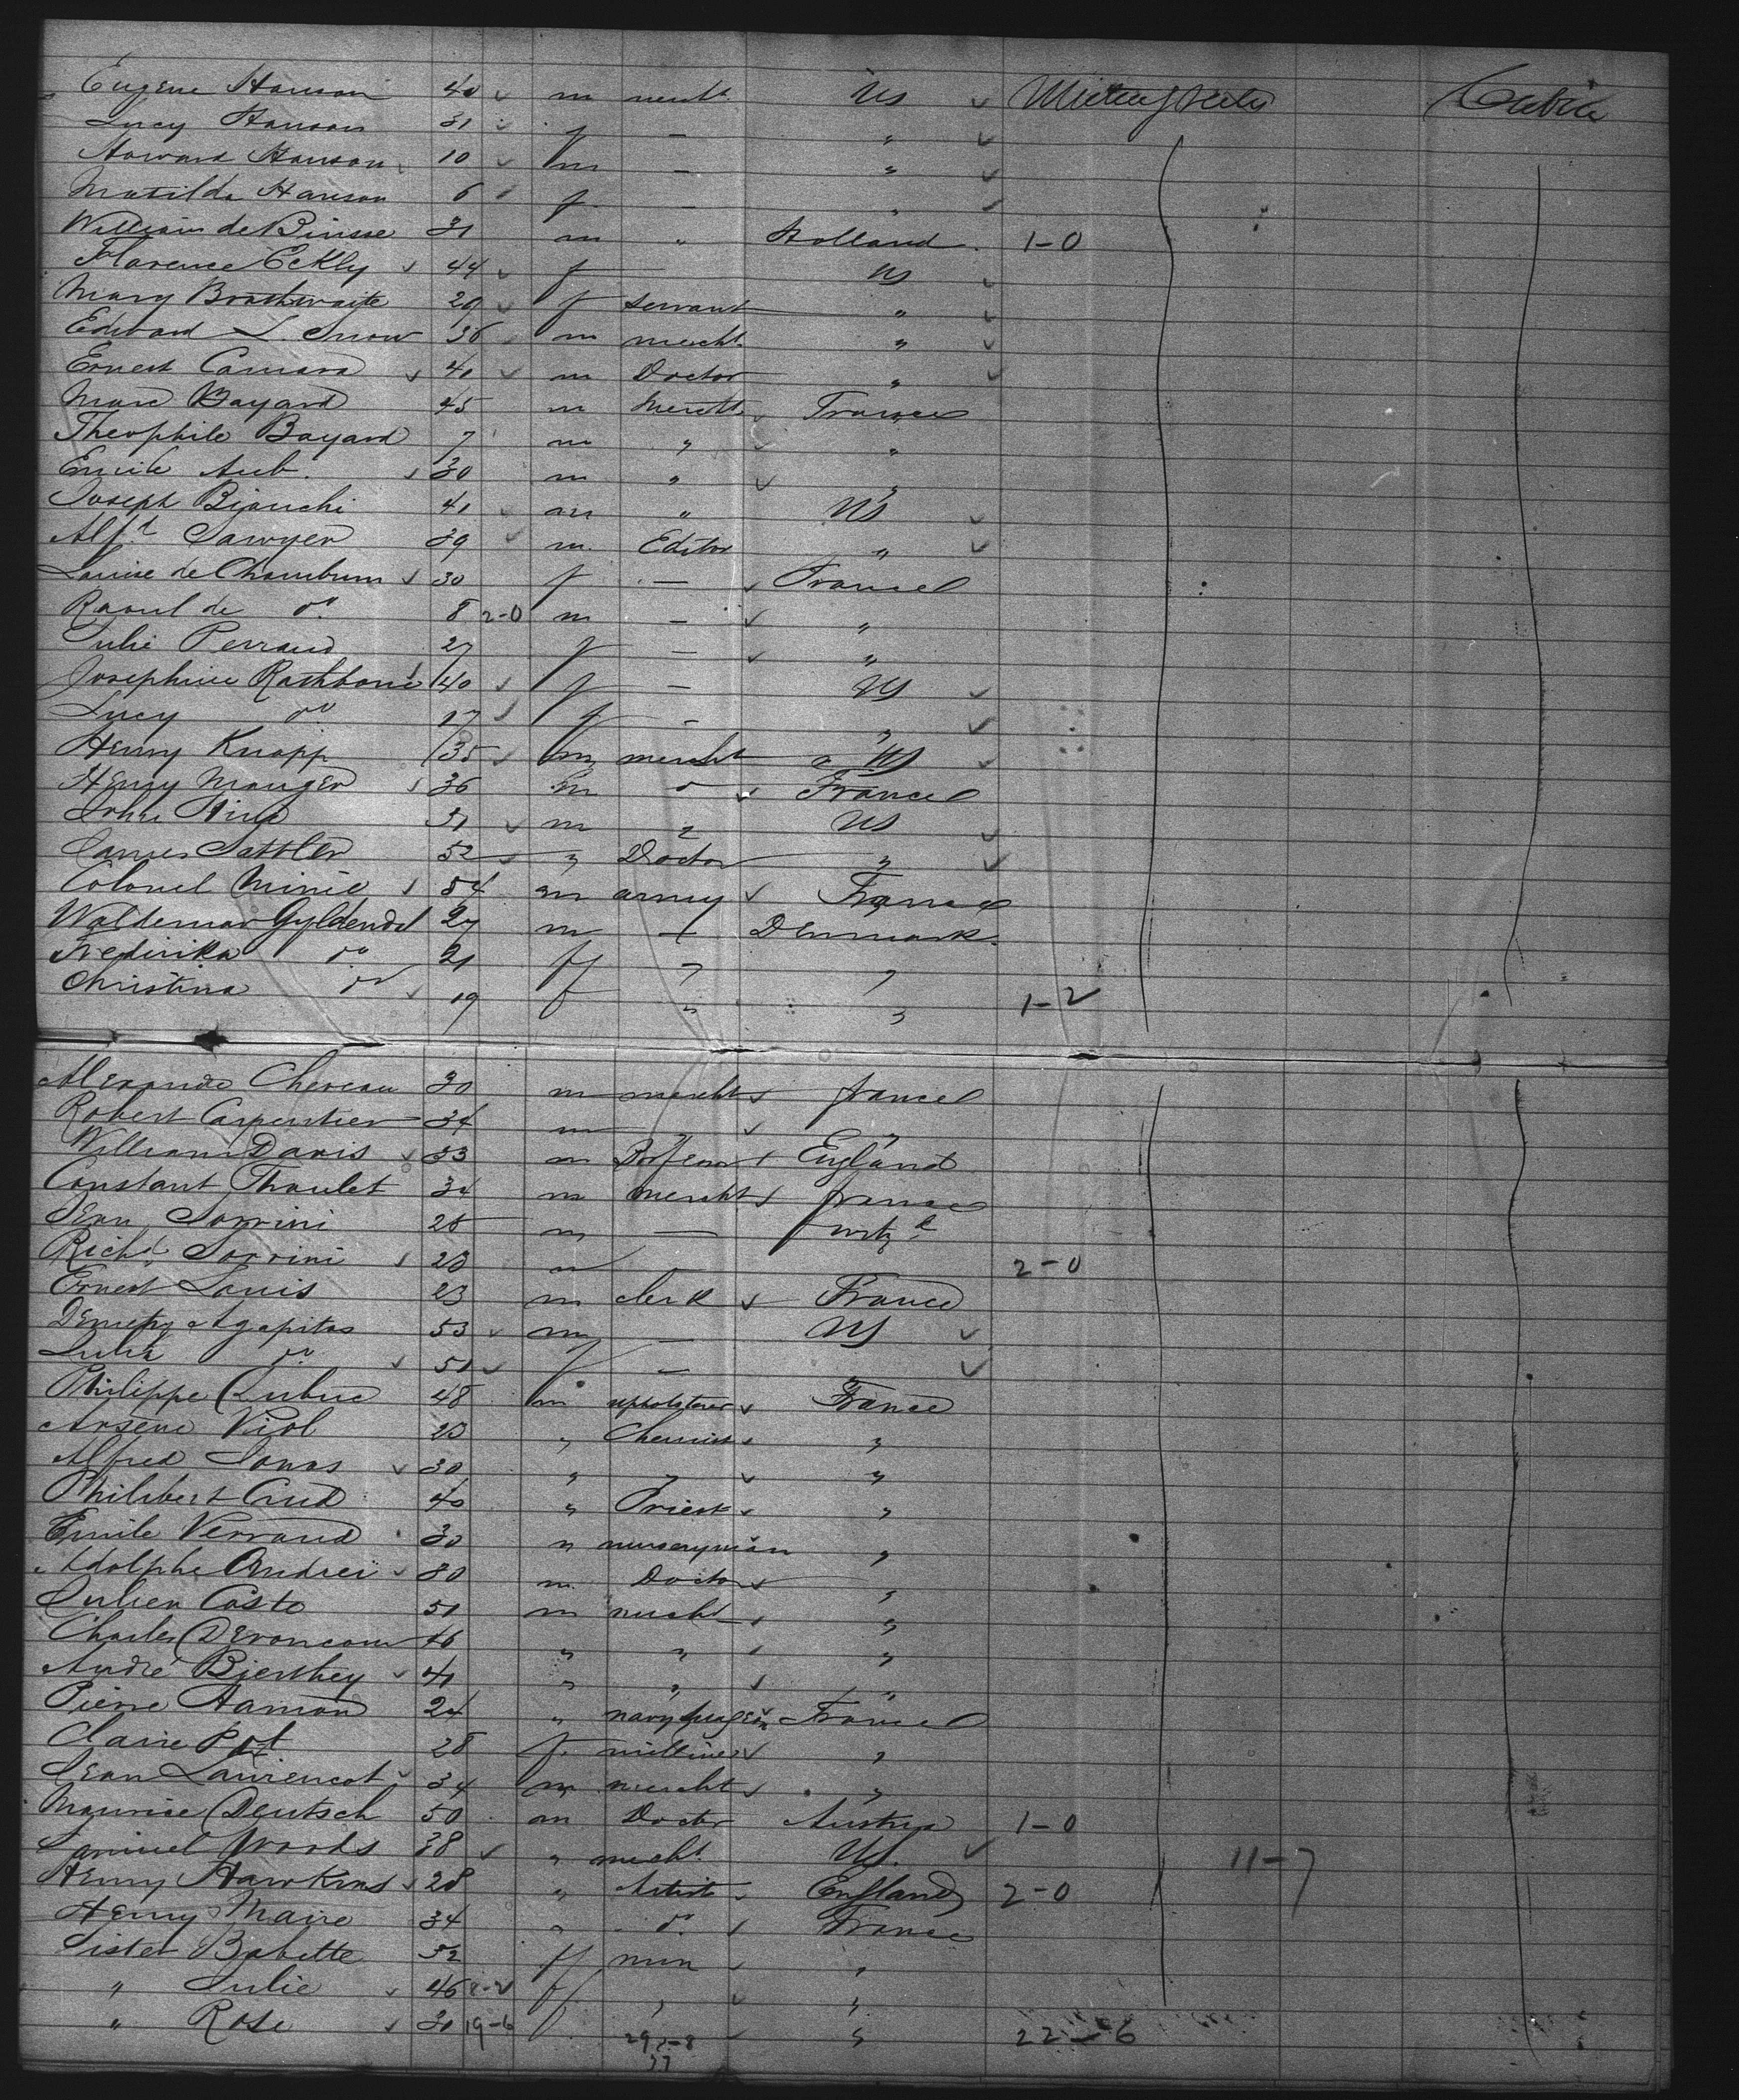 Eugene Hanson 40 m mercht US United States Cabin
Lucy Hanson 31 f — "
Howard Hanson 10 m — "
Matilda Hanson 6 f — "
William de Binsse 31 m " Holland 1-0
Florence Eckly 44 f — US
Mary Brathwaite 29 f servant "
Edward L. Snow 36 m mercht "
Ernest Camara 40 m Doctor "
Marc Bayard 45 m mercht France
Theophile Bayard 7 m " "
Emile Aub 30 m " "
Joseph Bianchi 41 m " US
Alfd Sawyer 39 m. Editor "
Louise de Chambrun 30 f — France
Raoul de do 8 2-0 m — "
Julie Perraud 27 f — "
Josephine Rathbone 40 f — US
Lucy do 17 f — "
Henry Knapp 35 m mercht US
Henry Mauger 36 m do France
John King 31 m " US
James Sattler 52 " Doctor "
Colonel Minie 54 m army France
Waldemar Gyldendal 27 m — Denmark
Frederika do 21 f " "
Christina do 19 f " " 1-2
Alexandre Chereau 30 m mercht france
Robert Carpentier 34 m " "
William Davis 33 m England
Constant Thoulet 34 m mercht france
Jean Sorrini 28 m —
Richd Sorrini 23 m 2-0
Ernest Louis 23 m clerk France
Demetry Agapitos 53 m — US
Julia do 51 f —
Philippe Dubuc 48 m upholsterer France
Arsene Viol 23 " Chemist "
Alfred Jonas 30 " " "
Philibert Crud 40 " Priest "
Emile Verraud 30 " nurseryman "
Adolphe Andrei 30 m Doctor "
Julien Costo 51 m mercht "
Charles Deroncour 46 " " "
André Bierthey 41 " " "
Pierre Hamon 24 " navy France
Claire Pot 28 f. milliner "
Jean Laurencot 34 m mercht "
Maurice Deutsch 50 m Doctor Austria 1-0
Samuel Woods 38 " mercht US. 11-7
Henry Hawkins 28 " Artist England 2-0
Henry Maire 34 " do France
Sister Babette 52 f nun "
" Julie 46 f " "
" Rose 30 19-6 f. " 22-6